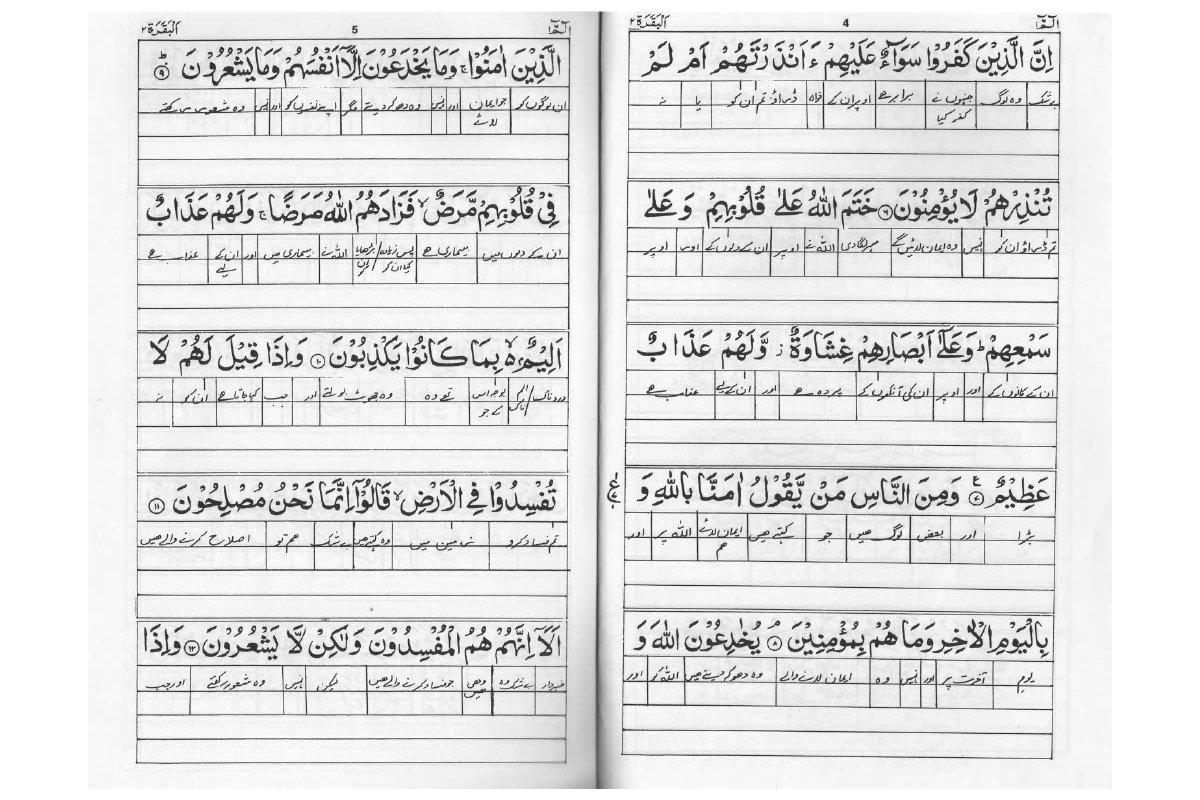 الٓمّٓ 4 اَلْبَقَرَة ٢
اِنَّ الَّذِيْنَ كَفَرُوْا سَوَآءٌ عَلَيْهِمْ ءَاَنْذَرْتَهُمْ اَمْ لَمْ
بے شک وہ لوگ جنہوں نے کفر کیا برابر ہے اوپر ان کے خواہ ڈراؤ تم ان کو یا نہ
تُنْذِرْهُمْ لَا يُؤْمِنُوْنَ ۶ خَتَمَ اللّٰهُ عَلٰى قُلُوْبِهِمْ وَ عَلٰى
تم ڈراؤ ان کو نہیں وہ ایمان لائیں گے مہر لگادی اللہ نے اوپر ان کے دلوں کے اور اوپر
سَمْعِهِمْ ؕ وَعَلٰٓى اَبْصَارِهِمْ غِشَاوَةٌ ز وَّلَهُمْ عَذَابٌ
ان کے کانوں کے اور اوپر ان کی آنکھوں کے پردہ ہے اور ان کے لیے عذاب ہے
عَظِيْمٌ ۷ وَمِنَ النَّاسِ مَنْ يَّقُوْلُ اٰمَنَّا بِاللّٰهِ وَ
بڑا اور بعض لوگ ہیں جو کہتے ہیں ایمان لائے ہم اللہ پر اور
بِالْيَوْمِ الْاٰخِرِ وَمَا هُمْ بِمُؤْمِنِيْنَ ۘ ۸ يُخٰدِعُوْنَ اللّٰهَ وَ
یوم آخرت پر اور نہیں وہ ایمان لانے والے وہ دھوکہ دیتے ہیں اللہ کو اور
الٓمّٓ 5 اَلْبَقَرَة ٢
الَّذِيْنَ اٰمَنُوْا ۚ وَمَا يَخْدَعُوْنَ اِلَّآ اَنْفُسَهُمْ وَمَا يَشْعُرُوْنَ ؕ ۹
ان لوگوں کو جو ایمان لائے اور نہیں وہ دھوکہ دیتے مگر اپنے نفسوں کو اور نہیں وہ شعور رکھتے
فِىْ قُلُوْبِهِمْ مَّرَضٌ ۙ فَزَادَهُمُ اللّٰهُ مَرَضًا ۚ وَلَهُمْ عَذَابٌ
ان کے دلوں میں بیماری ہے پس زیادہ کیا ان کو اللہ نے بیماری میں اور ان کے لیے عذاب ہے
اَلِيْمٌ ۙ بِمَا كَانُوْا يَكْذِبُوْنَ ۱۰ وَاِذَا قِيْلَ لَهُمْ لَا
دردناک بوجہ اس کے جو تھے وہ وہ جھوٹ بولتے اور جب کہا جاتا ہے ان کو نہ
تُفْسِدُوْا فِى الْاَرْضِ ۙ قَالُوْٓا اِنَّمَا نَحْنُ مُصْلِحُوْنَ ۱۱
تم فساد کرو زمین میں وہ کہتے ہیں بے شک ہم تو اصلاح کرنے والے ہیں
اَلَآ اِنَّهُمْ هُمُ الْمُفْسِدُوْنَ وَلٰكِنْ لَّا يَشْعُرُوْنَ ۱۲ وَاِذَا
خبردار بے شک وہ وہی ہیں جو فساد کرنے والے ہیں لیکن نہیں وہ شعور رکھتے اور جب